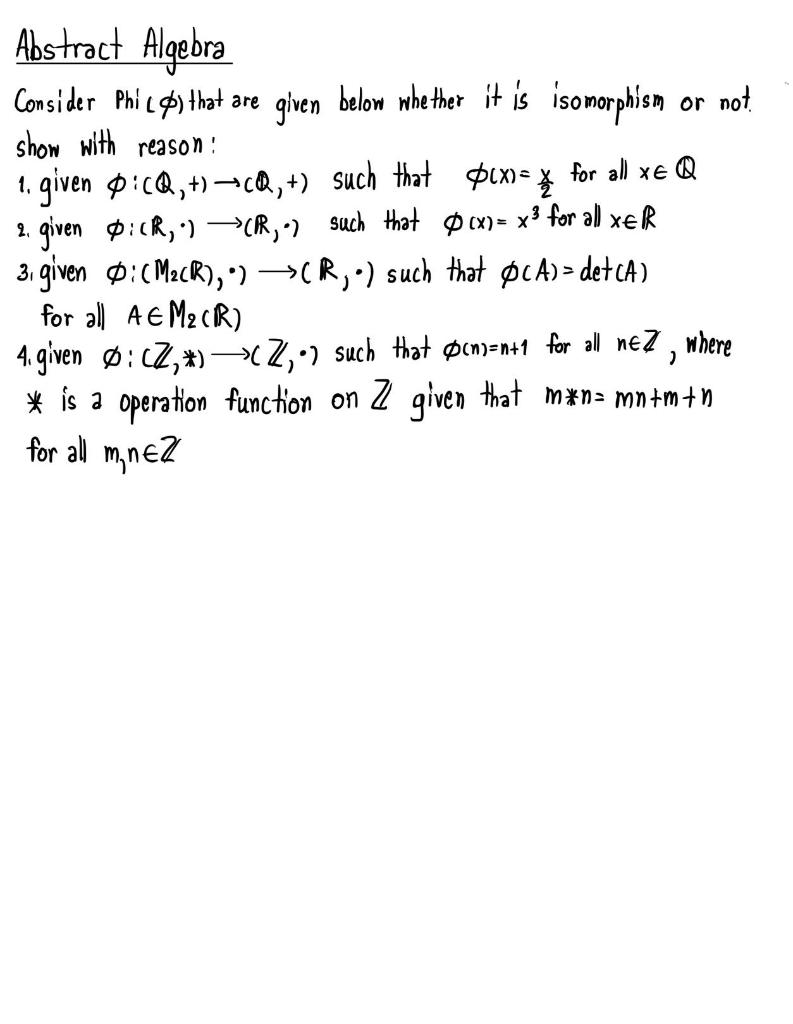 Abstract Algebra
Consider Phi (ϕ) that are given below whether it is isomorphism or not.
show with reason:
1. given ϕ:(ℚ,+)→(ℚ,+) such that ϕ(x)=x/2 for all x∈ℚ
2. given ϕ:(ℝ,·)→(ℝ,·) such that ϕ(x)=x³ for all x∈ℝ
3. given ϕ:(M₂(ℝ),·)→(ℝ,·) such that ϕ(A)=det(A)
for all A∈M₂(ℝ)
4. given ϕ:(ℤ,*)→(ℤ,·) such that ϕ(n)=n+1 for all n∈ℤ, where
* is a operation function on ℤ given that m*n=mn+m+n
for all m,n∈ℤ